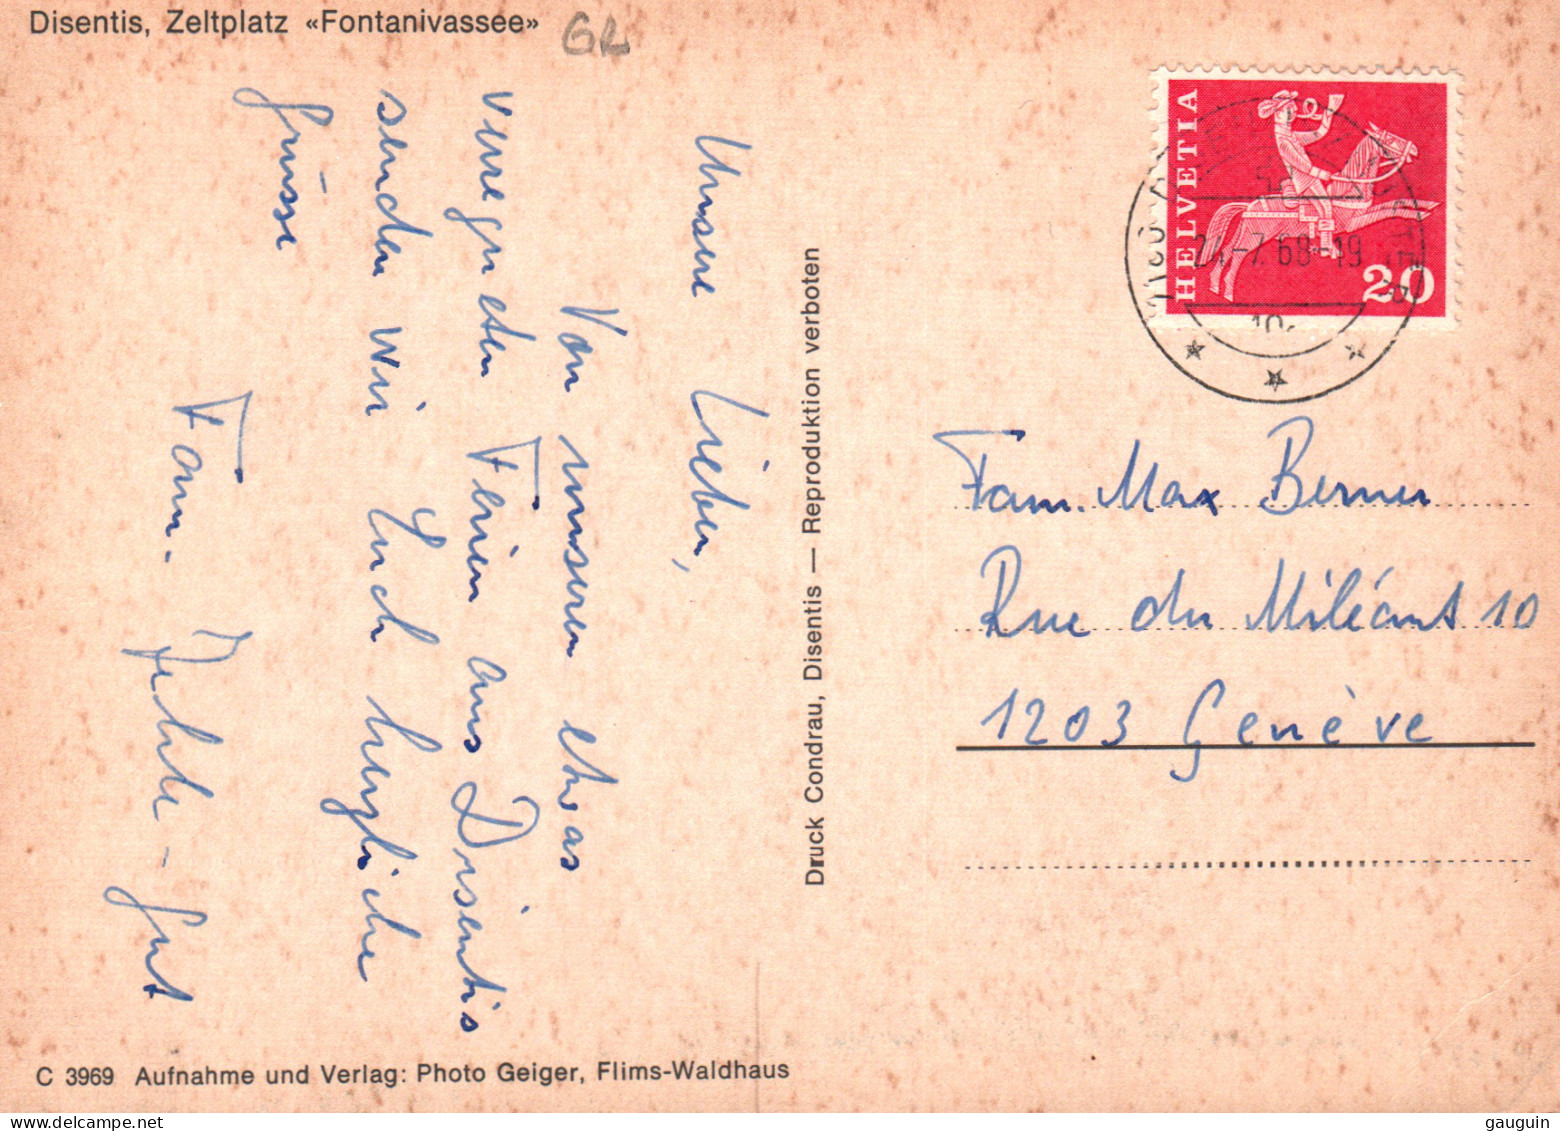 Disentis, Zeltplatz «Fontanivassee»
GR
Unsere Lieben,
Von unseren etwas
verregneten Ferien aus Disentis
senden wir Euch herzliche
Grüsse
Fam. - Gut
Druck Condrau, Disentis — Reproduktion verboten
C 3969 Aufnahme und Verlag: Photo Geiger, Flims-Waldhaus
HELVETIA
20
24.-7.68-19
Fam. Max Berner
Rue du Miléant 10
1203 Genève
gauguin